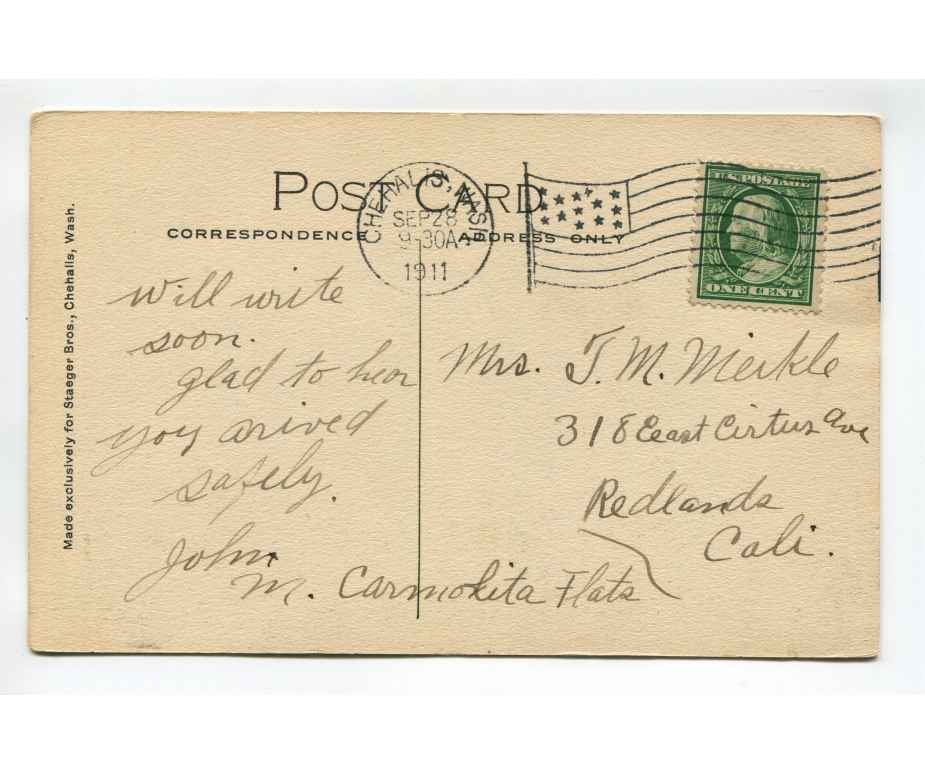 POST CARD
CORRESPONDENCE
ADDRESS ONLY
CHEHALIS, WASH
SEP 28
9-30A
1911
U.S. POSTAGE
ONE CENT
Made exclusively for Staeger Bros., Chehalis, Wash.
will write
soon.
glad to hear
you arived
safely.
John
M.
Mrs. T. M. Meikle
318 Eeast Cirtus Ave
Redlands
Cali.
Flats